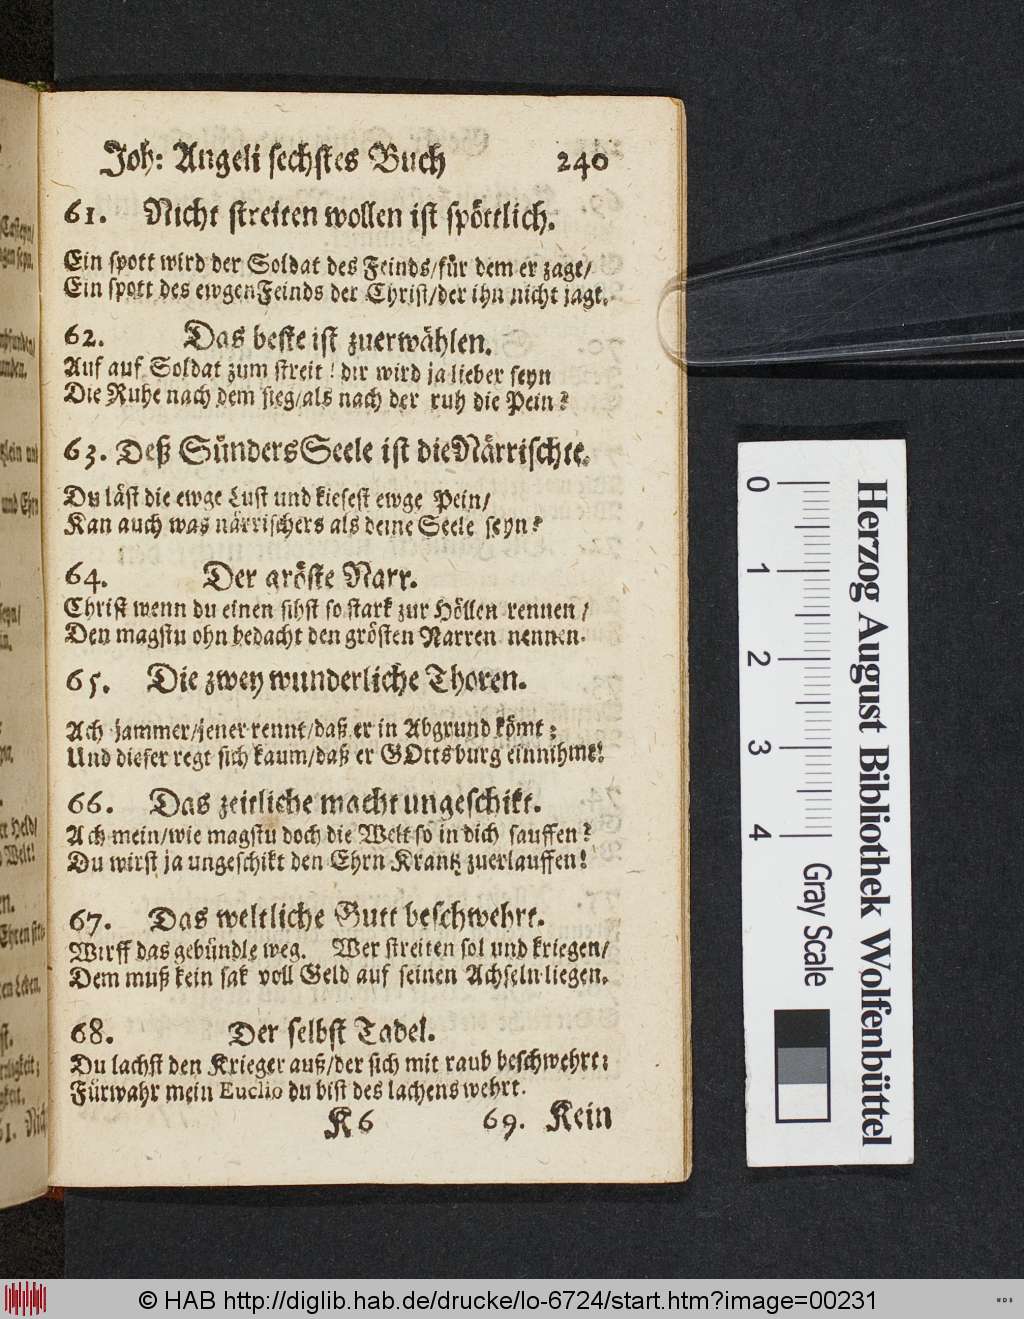 Joh: Angeli sechstes Buch 240
61. Nicht streiten wollen ist spöttlich.
Ein spott wird der Soldat des Feinds/für dem er zagt/
Ein spott des ewgen Feinds der Christ/der ihn nicht jagt.
62. Das beste ist zuerwählen.
Auf auf Soldat zum streit! dir wird ja lieber seyn
Die Ruhe nach dem sieg/als nach der ruh die Pein?
63. Deß Sünders Seele ist die Närrischte.
Du läst die ewge Lust und kiesest ewge Pein/
Kan auch was närrischers als deine Seele seyn?
64. Der gröste Narr.
Christ wenn du einen sihst so stark zur Höllen rennen/
Den magstu ohn bedacht den grösten Narren nennen.
65. Die zwey wunderliche Thoren.
Ach jammer/jener rennt/daß er in Abgrund kömt;
Und dieser regt sich kaum/daß er GOtts burg einnihmt!
66. Das zeitliche macht ungeschikt.
Ach mein/wie magstu doch die Welt so in dich sauffen?
Du wirst ja ungeschikt den Ehrn Krantz zuerlauffen!
67. Das weltliche Gutt beschwehrt.
Wirff das gebündle weg. Wer streiten sol und kriegen/
Dem muß kein sak voll Geld auf seinen Achseln liegen.
68. Der selbst Tadel.
Du lachst den Krieger auß/der sich mit raub beschwehrt:
Fürwahr mein Euclio du bist des lachens wehrt.
K 6 69. Kein
Herzog August Bibliothek Wolfenbüttel
0 1 2 3 4 Gray Scale
© HAB http://diglib.hab.de/drucke/lo-6724/start.htm?image=00231